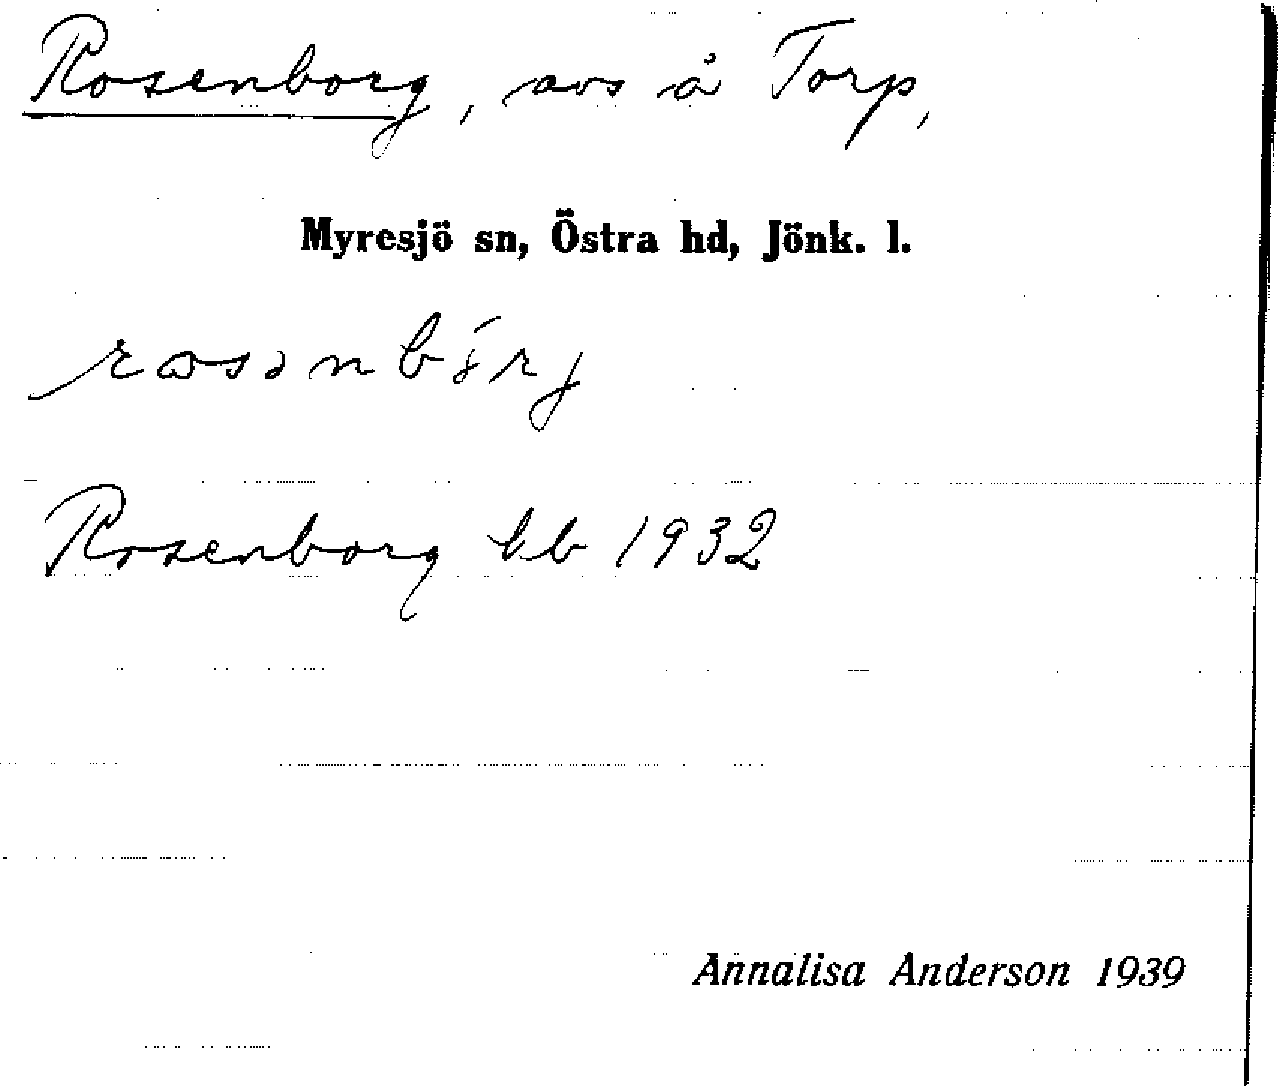 Rosenborg, avs å Torp,
Myresjö sn, Östra hd, Jönk. l.
Rosenborg lb 1932
Annalisa Anderson 1939